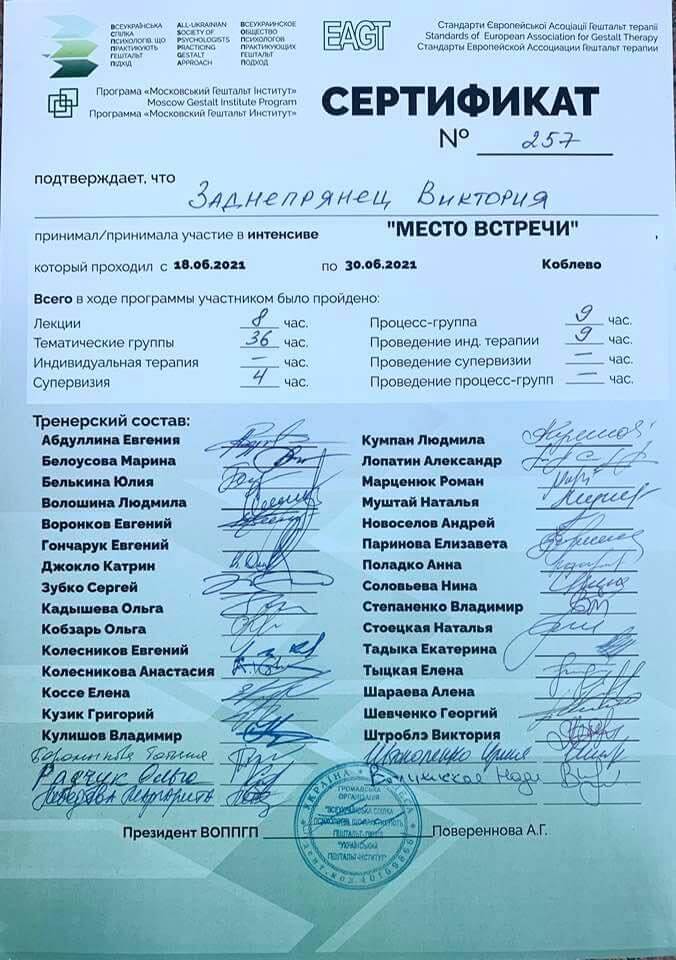 ВСЕУКРАЇНСЬКА СПІЛКА ПСИХОЛОГІВ, ЩО ПРАКТИКУЮТЬ ГЕШТАЛЬТ ПІДХІД
ALL-UKRAINIAN SOCIETY OF PSYCHOLOGISTS PRACTICING GESTALT APPROACH
ВСЕУКРАИНСКОЕ ОБЩЕСТВО ПСИХОЛОГОВ ПРАКТИКУЮЩИХ ГЕШТАЛЬТ ПОДХОД
EAGT
Стандарти Європейської Асоціації Гештальт терапії
Standards of European Association for Gestalt Therapy
Стандарты Европейской Ассоциации Гештальт терапии
Програма «Московський Гештальт Інститут»
Moscow Gestalt Institute Program
Программа «Московский Гештальт Институт»
СЕРТИФИКАТ
№ 257
подтверждает, что
Заднепрянец Виктория
принимал/принимала участие в интенсиве "МЕСТО ВСТРЕЧИ" ,
который проходил с 18.06.2021 по 30.06.2021 Коблево
Всего в ходе программы участником было пройдено:
Лекции 8 час. Процесс-группа 9 час.
Тематические группы 36 час. Проведение инд. терапии 9 час.
Индивидуальная терапия — час. Проведение супервизии — час.
Супервизия 4 час. Проведение процесс-групп — час.
Тренерский состав:
Абдуллина Евгения Кумпан Людмила
Белоусова Марина Лопатин Александр
Белькина Юлия Марценюк Роман
Волошина Людмила Муштай Наталья
Воронков Евгений Новоселов Андрей
Гончарук Евгений Паринова Елизавета
Джокло Катрин Поладко Анна
Зубко Сергей Соловьева Нина
Кадышева Ольга Степаненко Владимир
Кобзарь Ольга Стоецкая Наталья
Колесников Евгений Тадыка Екатерина
Колесникова Анастасия Тыцкая Елена
Коссе Елена Шараева Алена
Кузик Григорий Шевченко Георгий
Кулишов Владимир Штроблэ Виктория
Радчук Ольга
Президент ВОППГП Повереннова А.Г.
УКРАЇНА
ГРОМАДСЬКА ОРГАНІЗАЦІЯ
"ВСЕУКРАЇНСЬКА СПІЛКА
ПСИХОЛОГІВ, ЩО ПРАКТИКУЮТЬ
ГЕШТАЛЬТ-ПІДХІД
"УКРАЇНСЬКИЙ
ГЕШТАЛЬТ-ІНСТИТУТ"